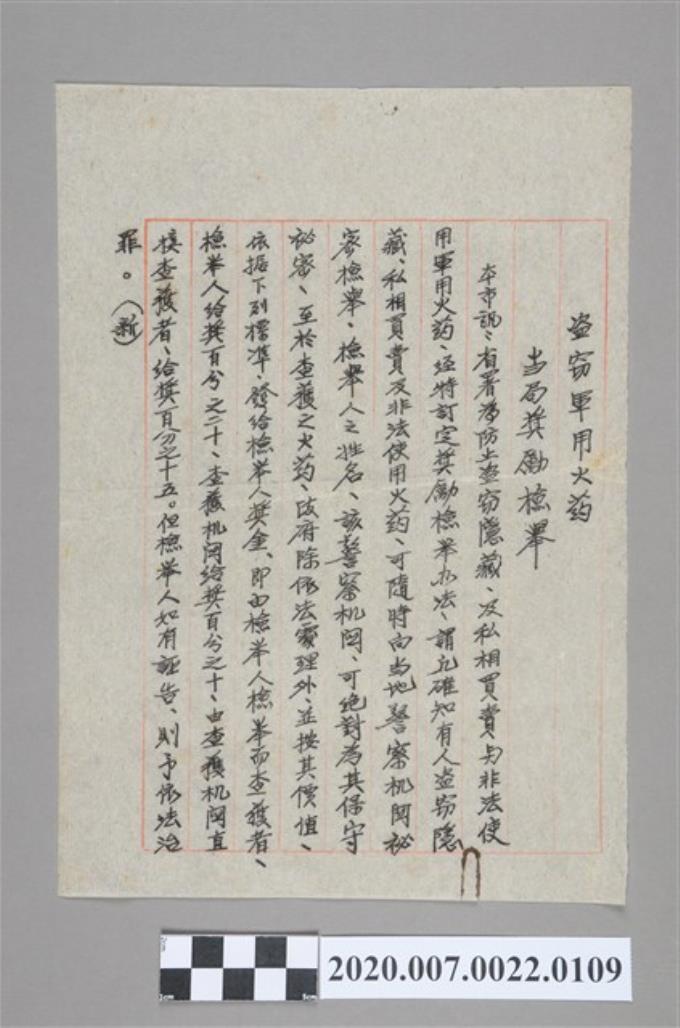 盗窃軍用火药
当局奬勵檢舉
本市訊、有署為防止盗窃隱藏、及私相買賣与非法使
用軍用火药、经特訂定奬勵檢举办法、謂凡確知有人盗窃隱
藏、私相買賣及非法使用火药、可隨時向当地警察机関秘
密檢舉、檢舉人之姓名、該警察机関、可絶對為其保守
秘密、至於查獲之火药、政府除依法處理外、並按其價值、
依据下列標準、發給檢举人奬金、即由檢举人檢举而查獲者、
檢举人給奬百分之二十、查獲机関給奬百分之十、由查獲机関直
接查獲者、給奬百分之十五。但檢举人如有誣告、則予依法治
罪。（新）
2cm
1cm
5cm
2020.007.0022.0109